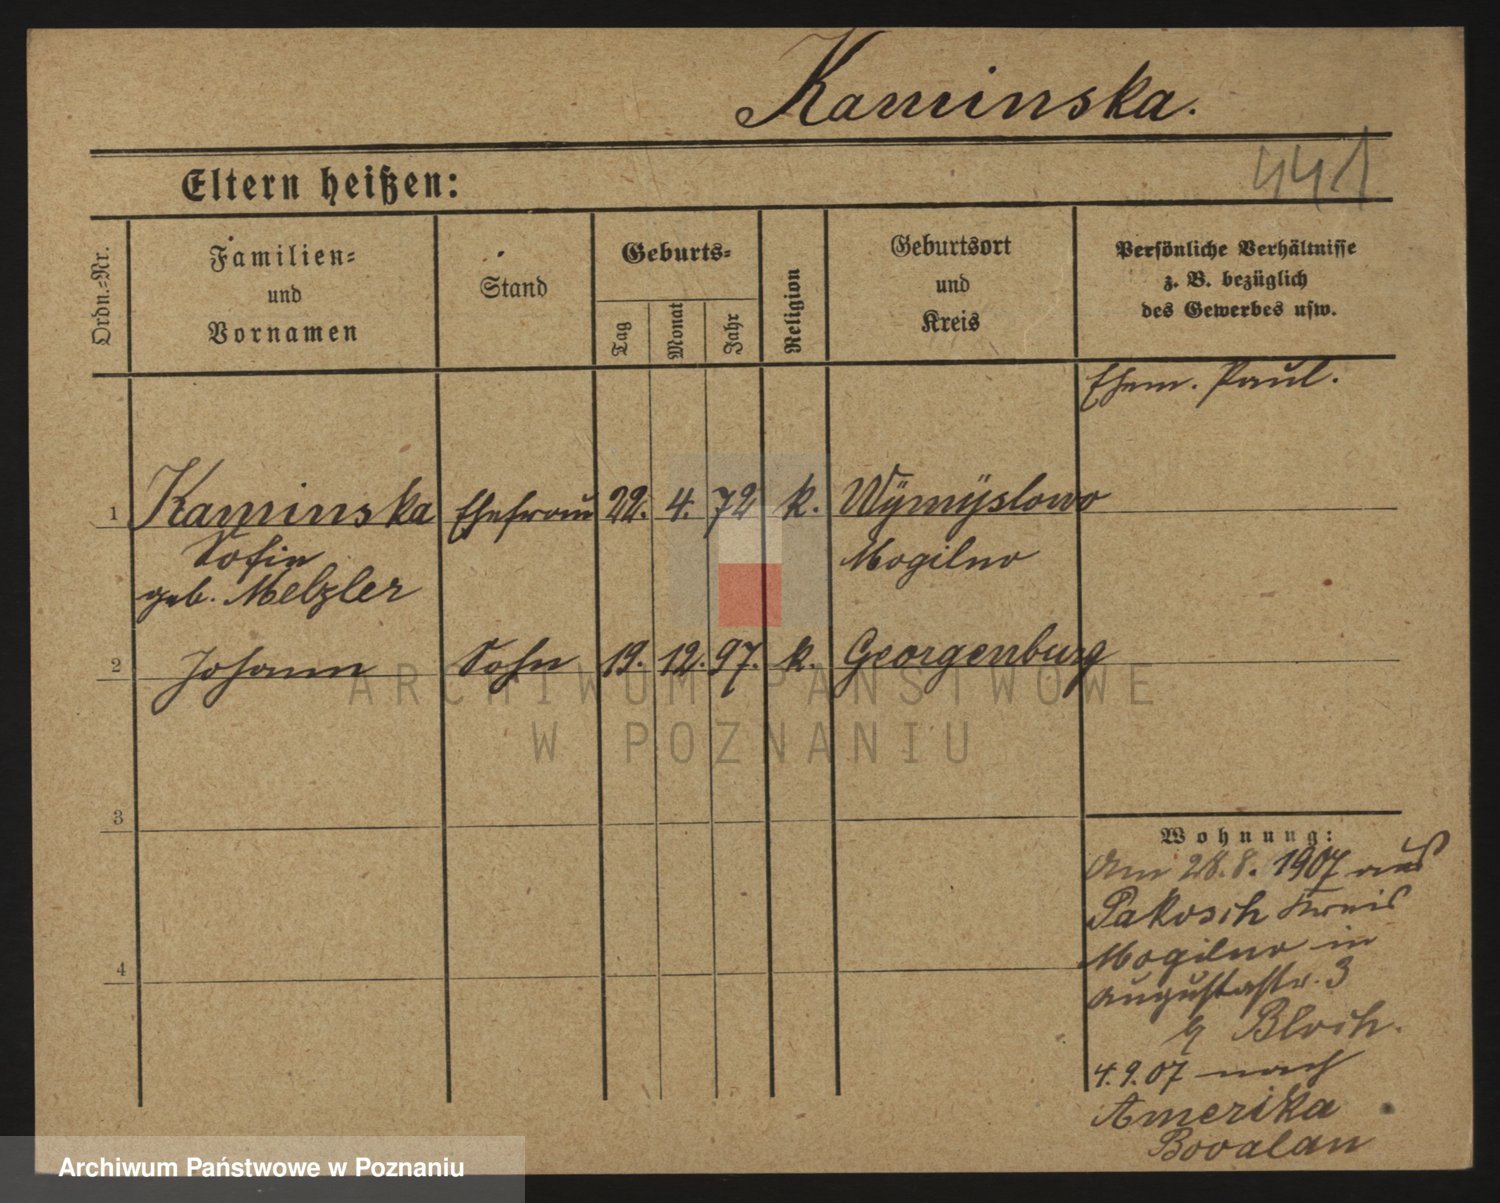 Kaminska.
441
Eltern heißen:
Ordn.-Nr.
Familien-
und
Vornamen
Stand
Geburts-
Tag
Monat
Jahr
Religion
Geburtsort
und
Kreis
Persönliche Verhältnisse
z. B. bezüglich
des Gewerbes usw.
Ehem. Paul.
1 Kaminska Ehefrau 22. 4. 72 k. Wÿmÿslowo
Sofie Mogilno
geb. Melzler
2 Johann Sohn 19. 12. 97. k. Georgenburg
ARCHIWUM PAŃSTWOWE
W POZNANIU
3
Wohnung:
Am 28.8. 1907 aus
Pakosch Kreis
Mogilno in
Augustastr. 3
b Bloch.
4
4.9.07 nach
Amerika
Booalan
Archiwum Państwowe w Poznaniu